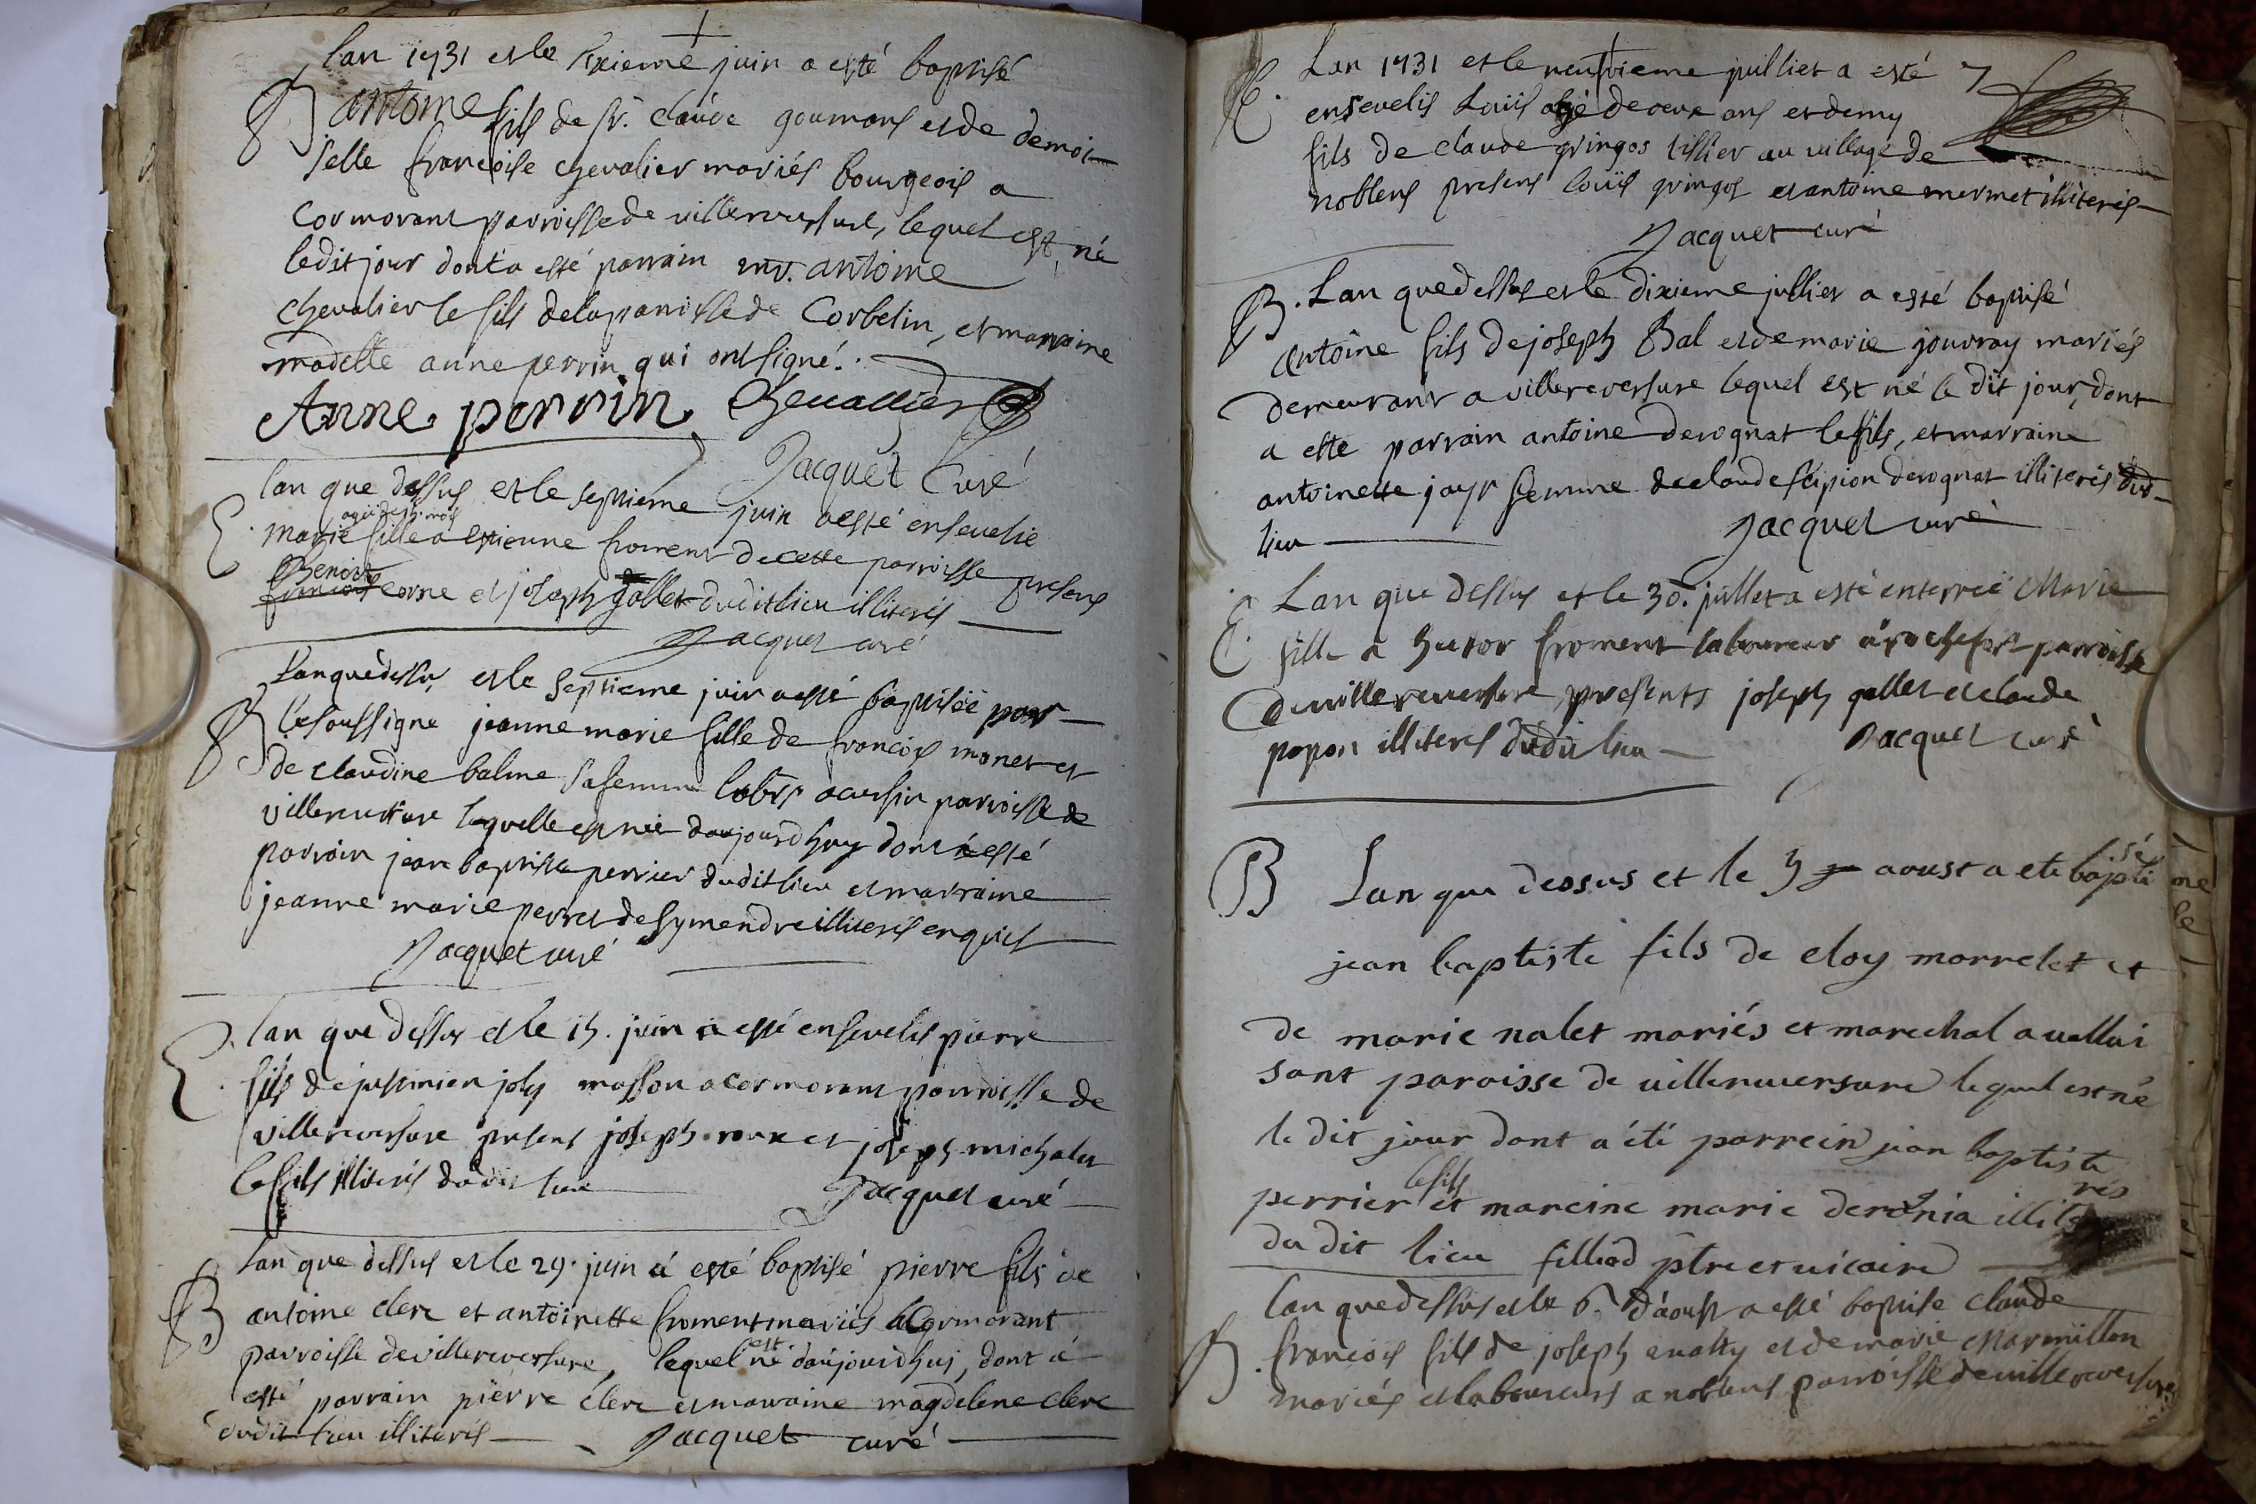 lan 1731 et le sixieme juin a esté baptisé
B antoine fils de sr. claude goumans et de demoi
selle francoise chevalier mariés bourgeois a
cormorant parroisse de villereversure, lequel est né
ledit jour dont a esté parrain mr. antoine
chevalier le fils de la parroisse de Corbelin, et marraine
madelle anne perrin qui ont signé.
Anne perrin Chevallier
Jacquet Curé
lan que dessus et le septieme juin a esté ensevelie
E. marie agée de mois fille a etienne froment de cette parroisse presens
Benoit francois corne et joseph gallet dudit lieu illiteris
Jacquet curé
Lan que dessus et le septieme juin a esté baptisée par
B le soussigne jeanne marie fille de francois monet et
de claudine balme sa femme labrs a cursin parroisse de
villereversure laquelle est née daujourdhuy dont a esté
parrain jean baptiste perrier dudit lieu et marraine
jeanne marie perret de symendre illiteris enquis
Jacquet curé
E. lan que dessus et le 15. juin a esté ensevelis pierre
fils de justinien joly masson a cormorant parroisse de
villereversure presens joseph roux et joseph michalet
le fils illiteris dudit lieu Jacquet curé
lan que dessus et le 29. juin a esté baptisé pierre fils de
B antoine clerc et antoinette froment mariés a Cormorant
parroisse de villereversure, lequel est né daujourdhuj, dont a
esté parrain pierre clerc et marraine magdelene clerc
dudit lieu illiteris Jacquet curé
E. Lan 1731 et le neufvieme juilliet a esté 7
ensevelis Louis agé de deux ans et demy
fils de claude gringos tissier au village de
noblens presens louis gringos et antoine mermet illiteris
Jacquet curé
B. Lan que dessus et le dixieme jullier a esté baptisé
antoine fils de joseph Bal et de marie jouvray mariés
demeurant a villereversure lequel est né le dit jour, dont
a esté parrain antoine derognat le fils, et marraine
antoinette jayr femme de claude scipion derognat illiteris dud
lieu Jacquet curé
E. Lan que dessus et le 30. juillet a esté enterree Marie
fille a hector froment laboureur a rochefort parroisse
de villereversure presents joseph gallet et claude
popon illiteres dudit lieu Jacquet curé
B Lan que dessus et le 5 aoust a ete baptisé
jean baptiste fils de eloy morrelet et
de marie nalet mariés et marechal a vallui
sant paroisse de villereversure lequel est né
le dit jour dont a été parrein jean baptiste
perrier le fils et mareine marie deronia illiterés
du dit lieu filliod ptre et vicaire
lan que dessus et le 6. daoust a esté baptise claude
B. francois fils de joseph evatty et de marie Marmillon
mariés et laboureurs a noblens parroisse de villereversure